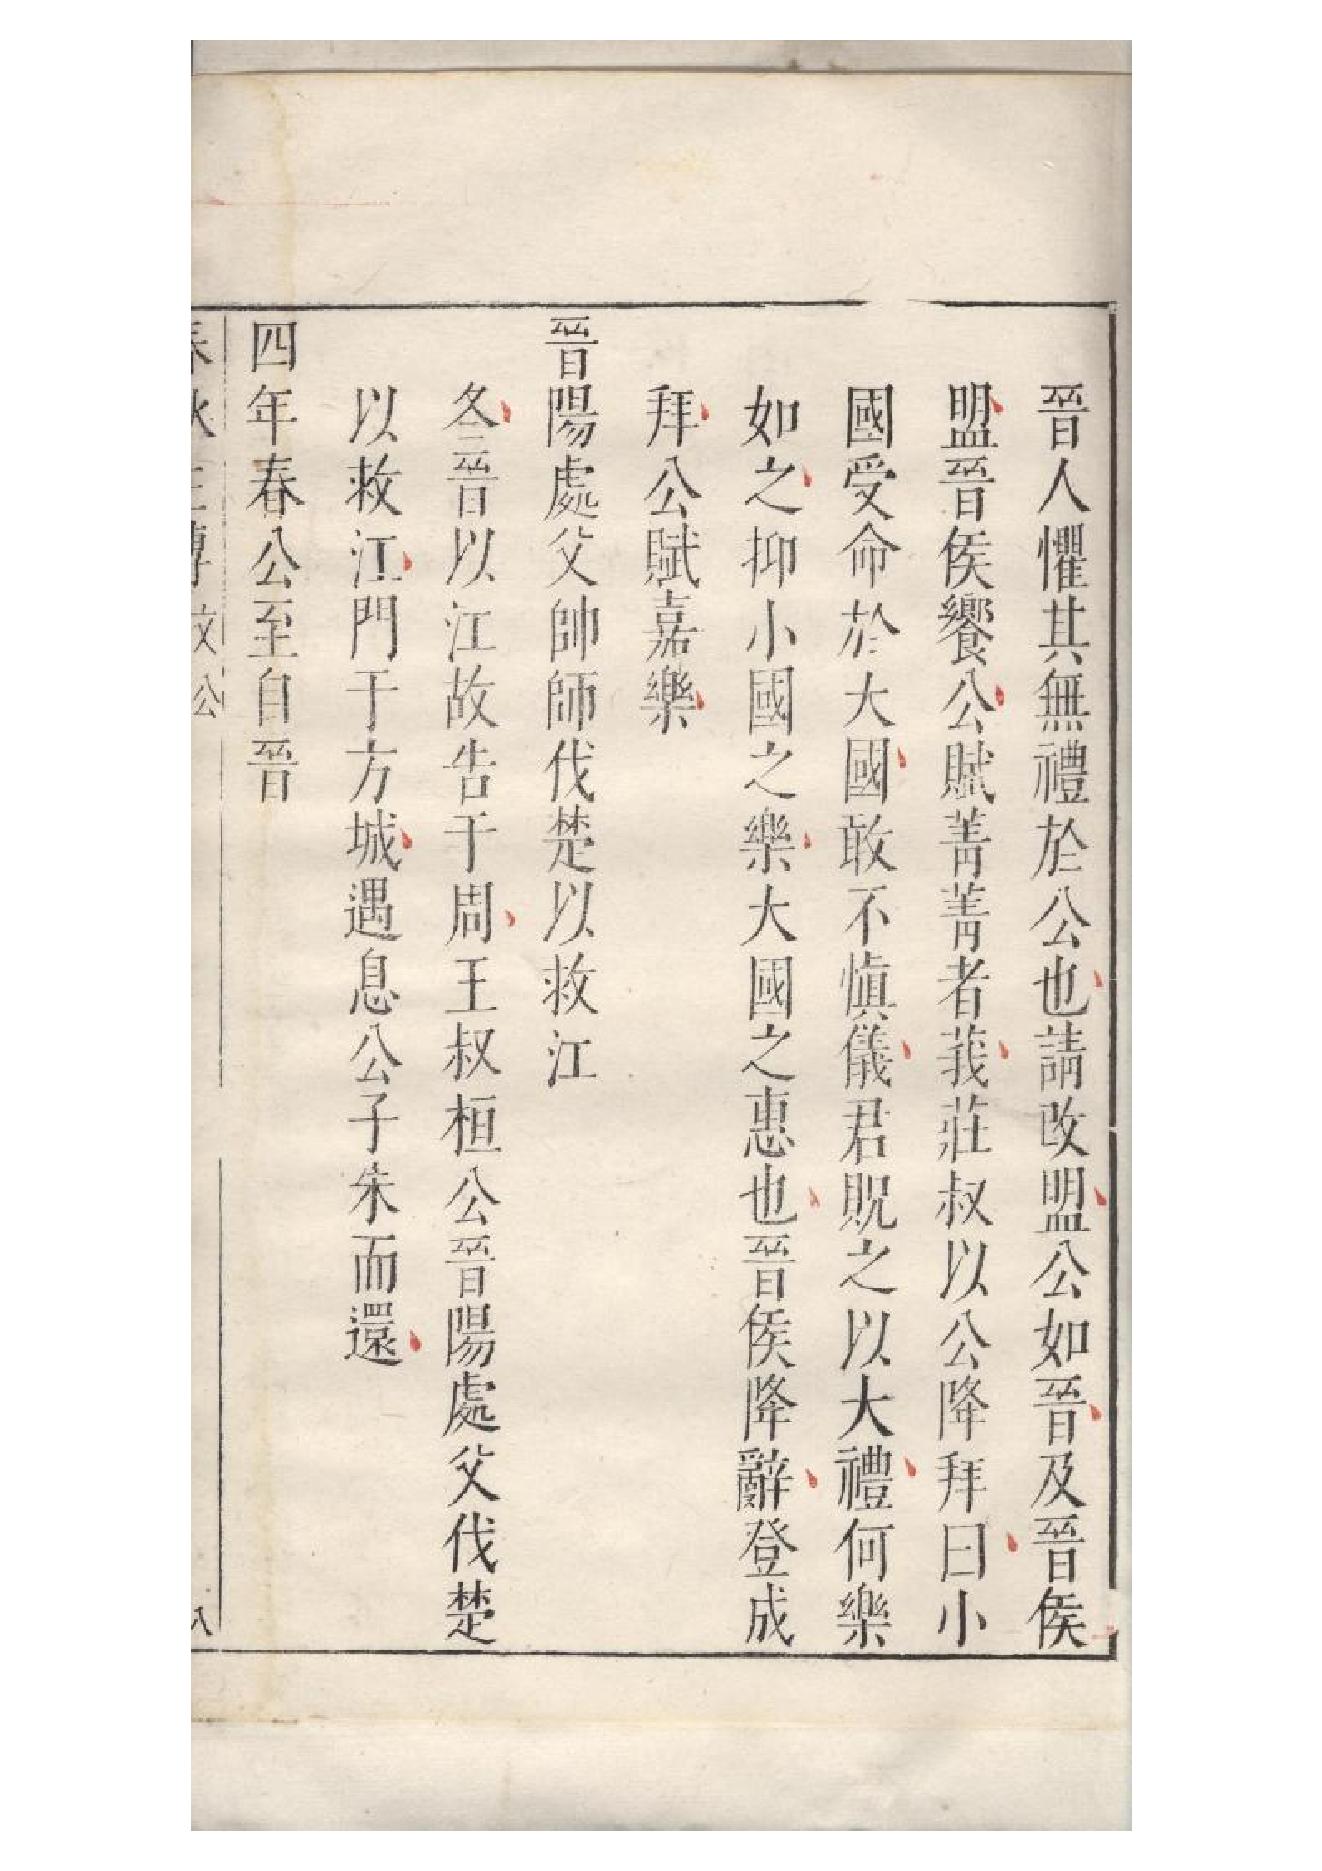 晉人懼其無禮於公也請改盟公如晉及晉侯
盟晉侯饗公賦菁菁者莪莊叔以公降拜曰小
國受命於大國敢不愼儀君貺之以大禮何樂
如之抑小國之樂大國之惠也晉侯降辭登成
拜公賦嘉樂
晉陽處父帥師伐楚以救江
冬晉以江故告于周王叔桓公晉陽處父伐楚
以救江門于方城遇息公子朱而還
四年春公至自晉
春秋左傳 文公 八